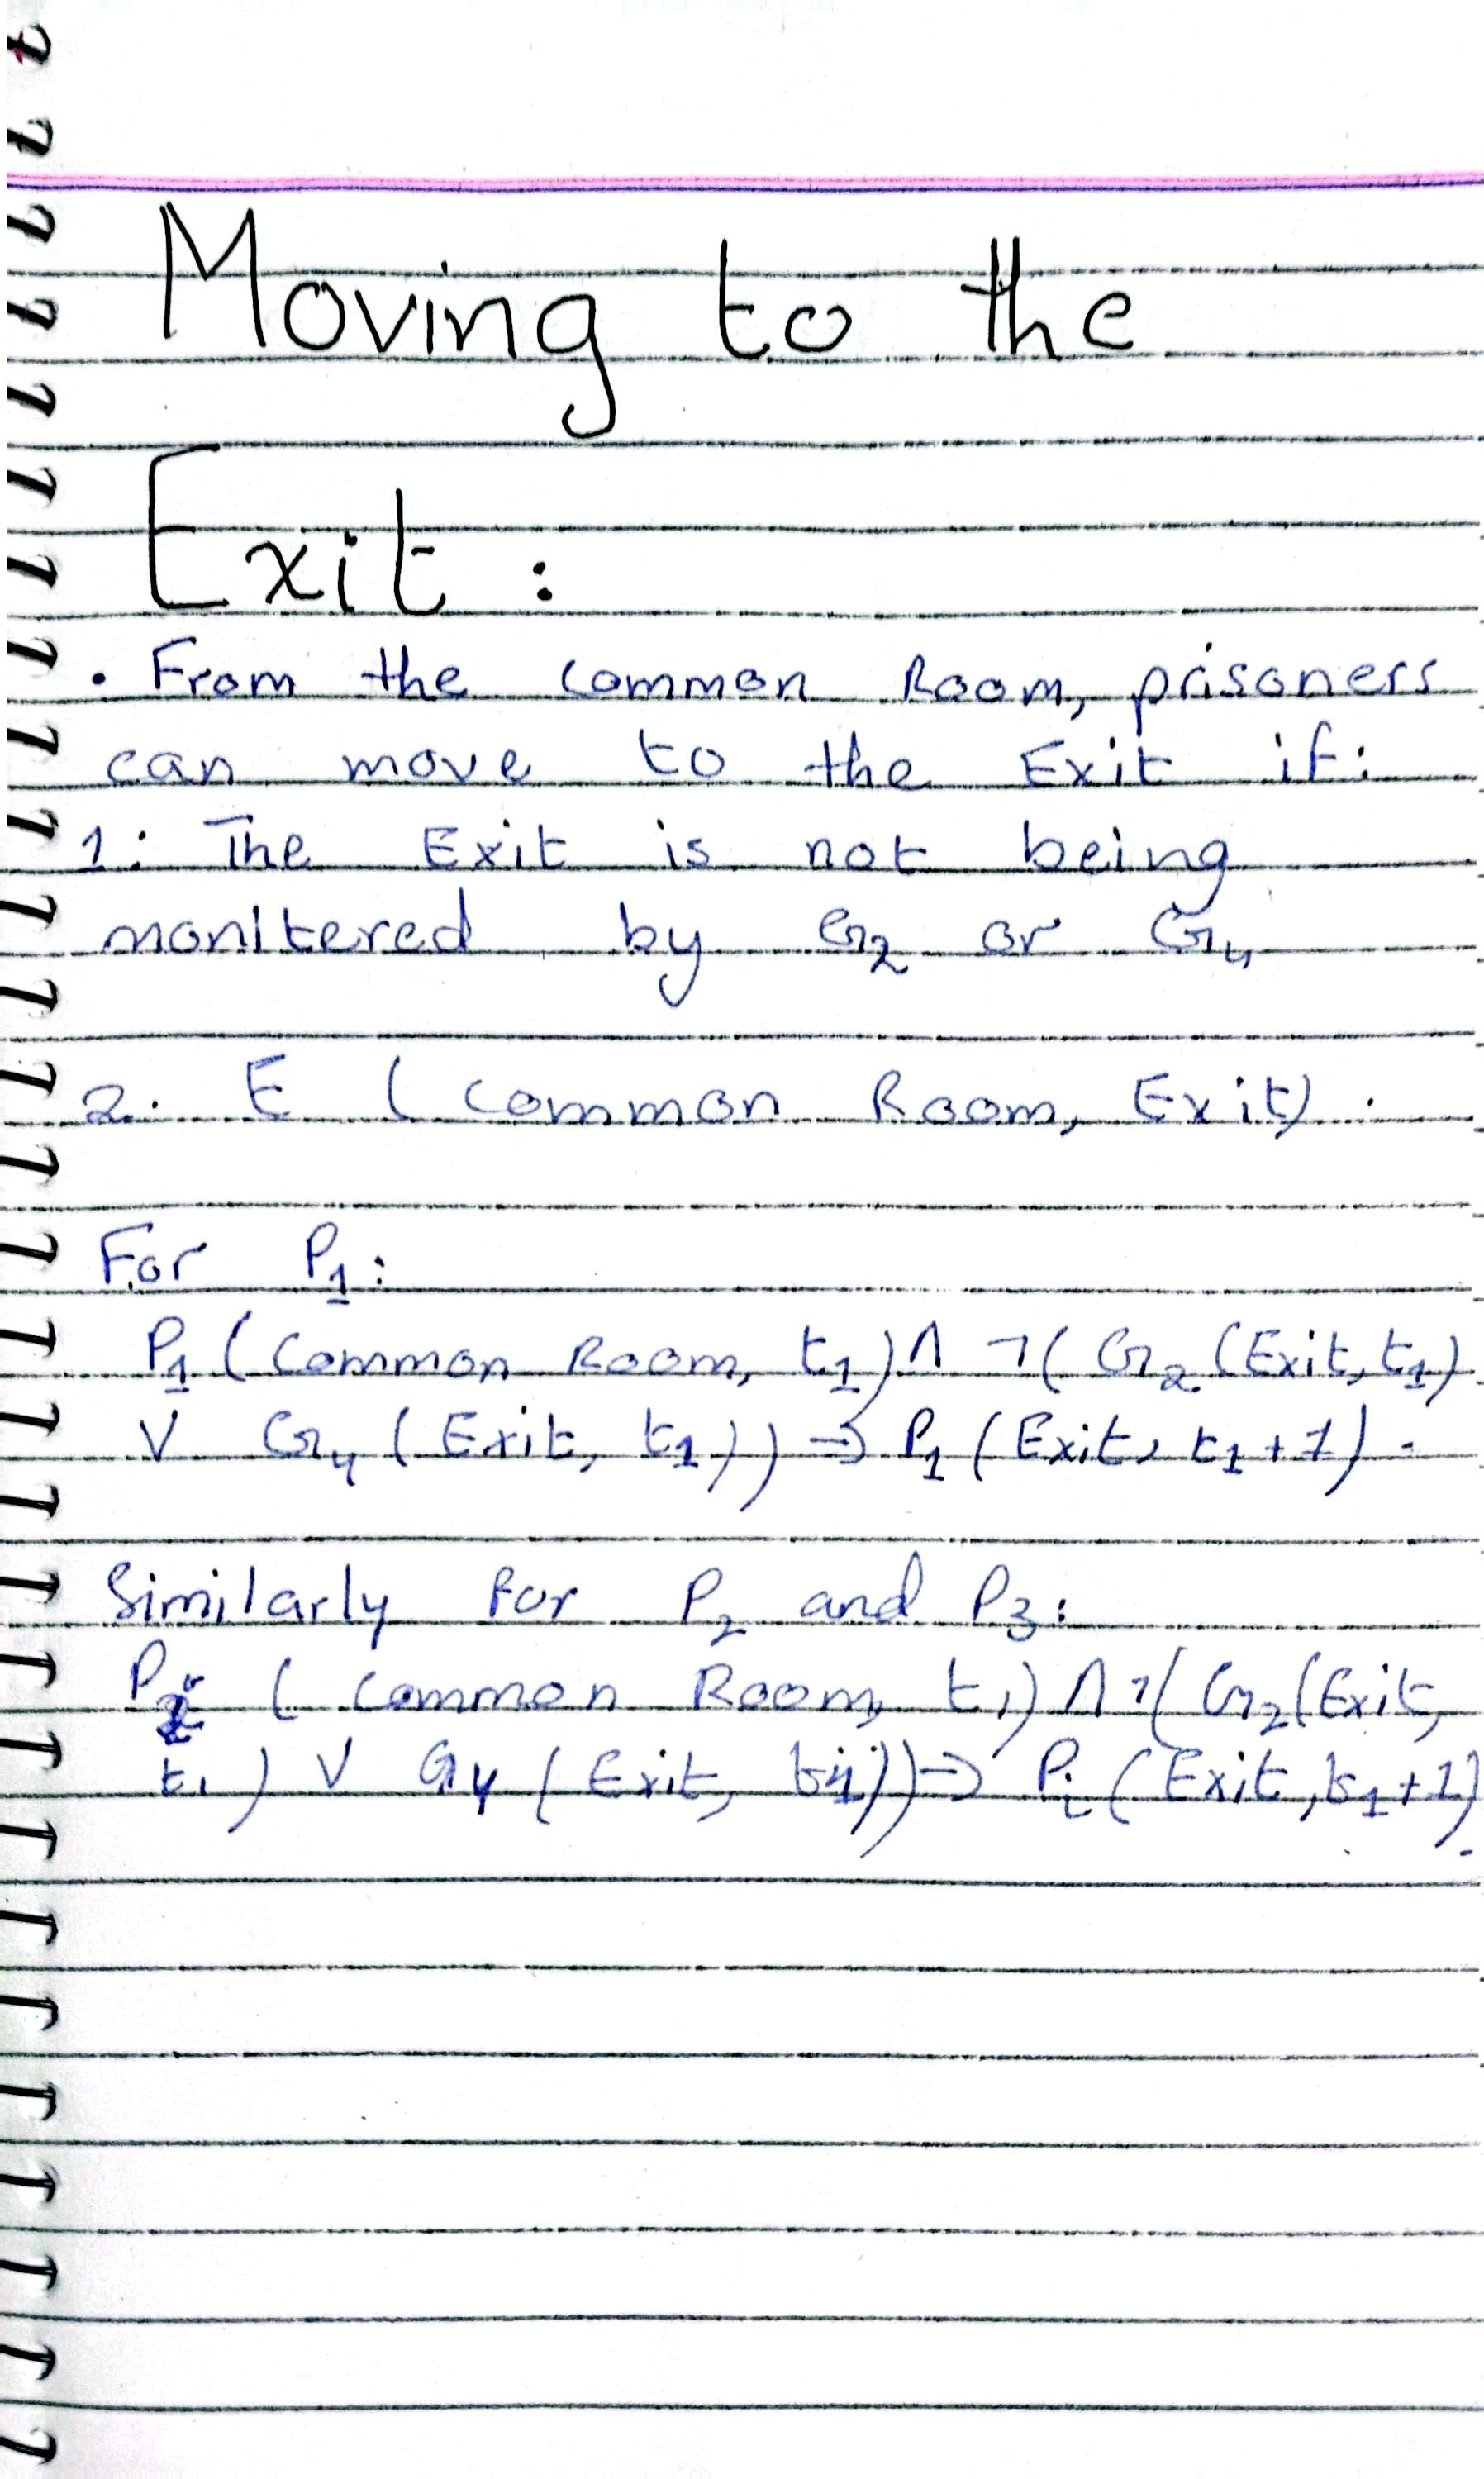 Moving to the
Exit :
• From the Common Room, prisoners
can move to the Exit if:
1: The Exit is not being
monitered by G₂ or G₄
2. E ( Common Room, Exit) .
For P₁:
P₁ ( Common Room, t₁) ∧ ¬ ( G₂ (Exit, t₁)
∨ G₄ ( Exit, t₁ ) ) → P₁ ( Exit, t₁ + 1 ) .
Similarly for P₂ and P₃:
( Common Room, t₁) ∧ ¬ ( G₂ (Exit,
t₁ ) ∨ G₄ ( Exit, )) → Pᵢ ( Exit, t₁ + 1)
.